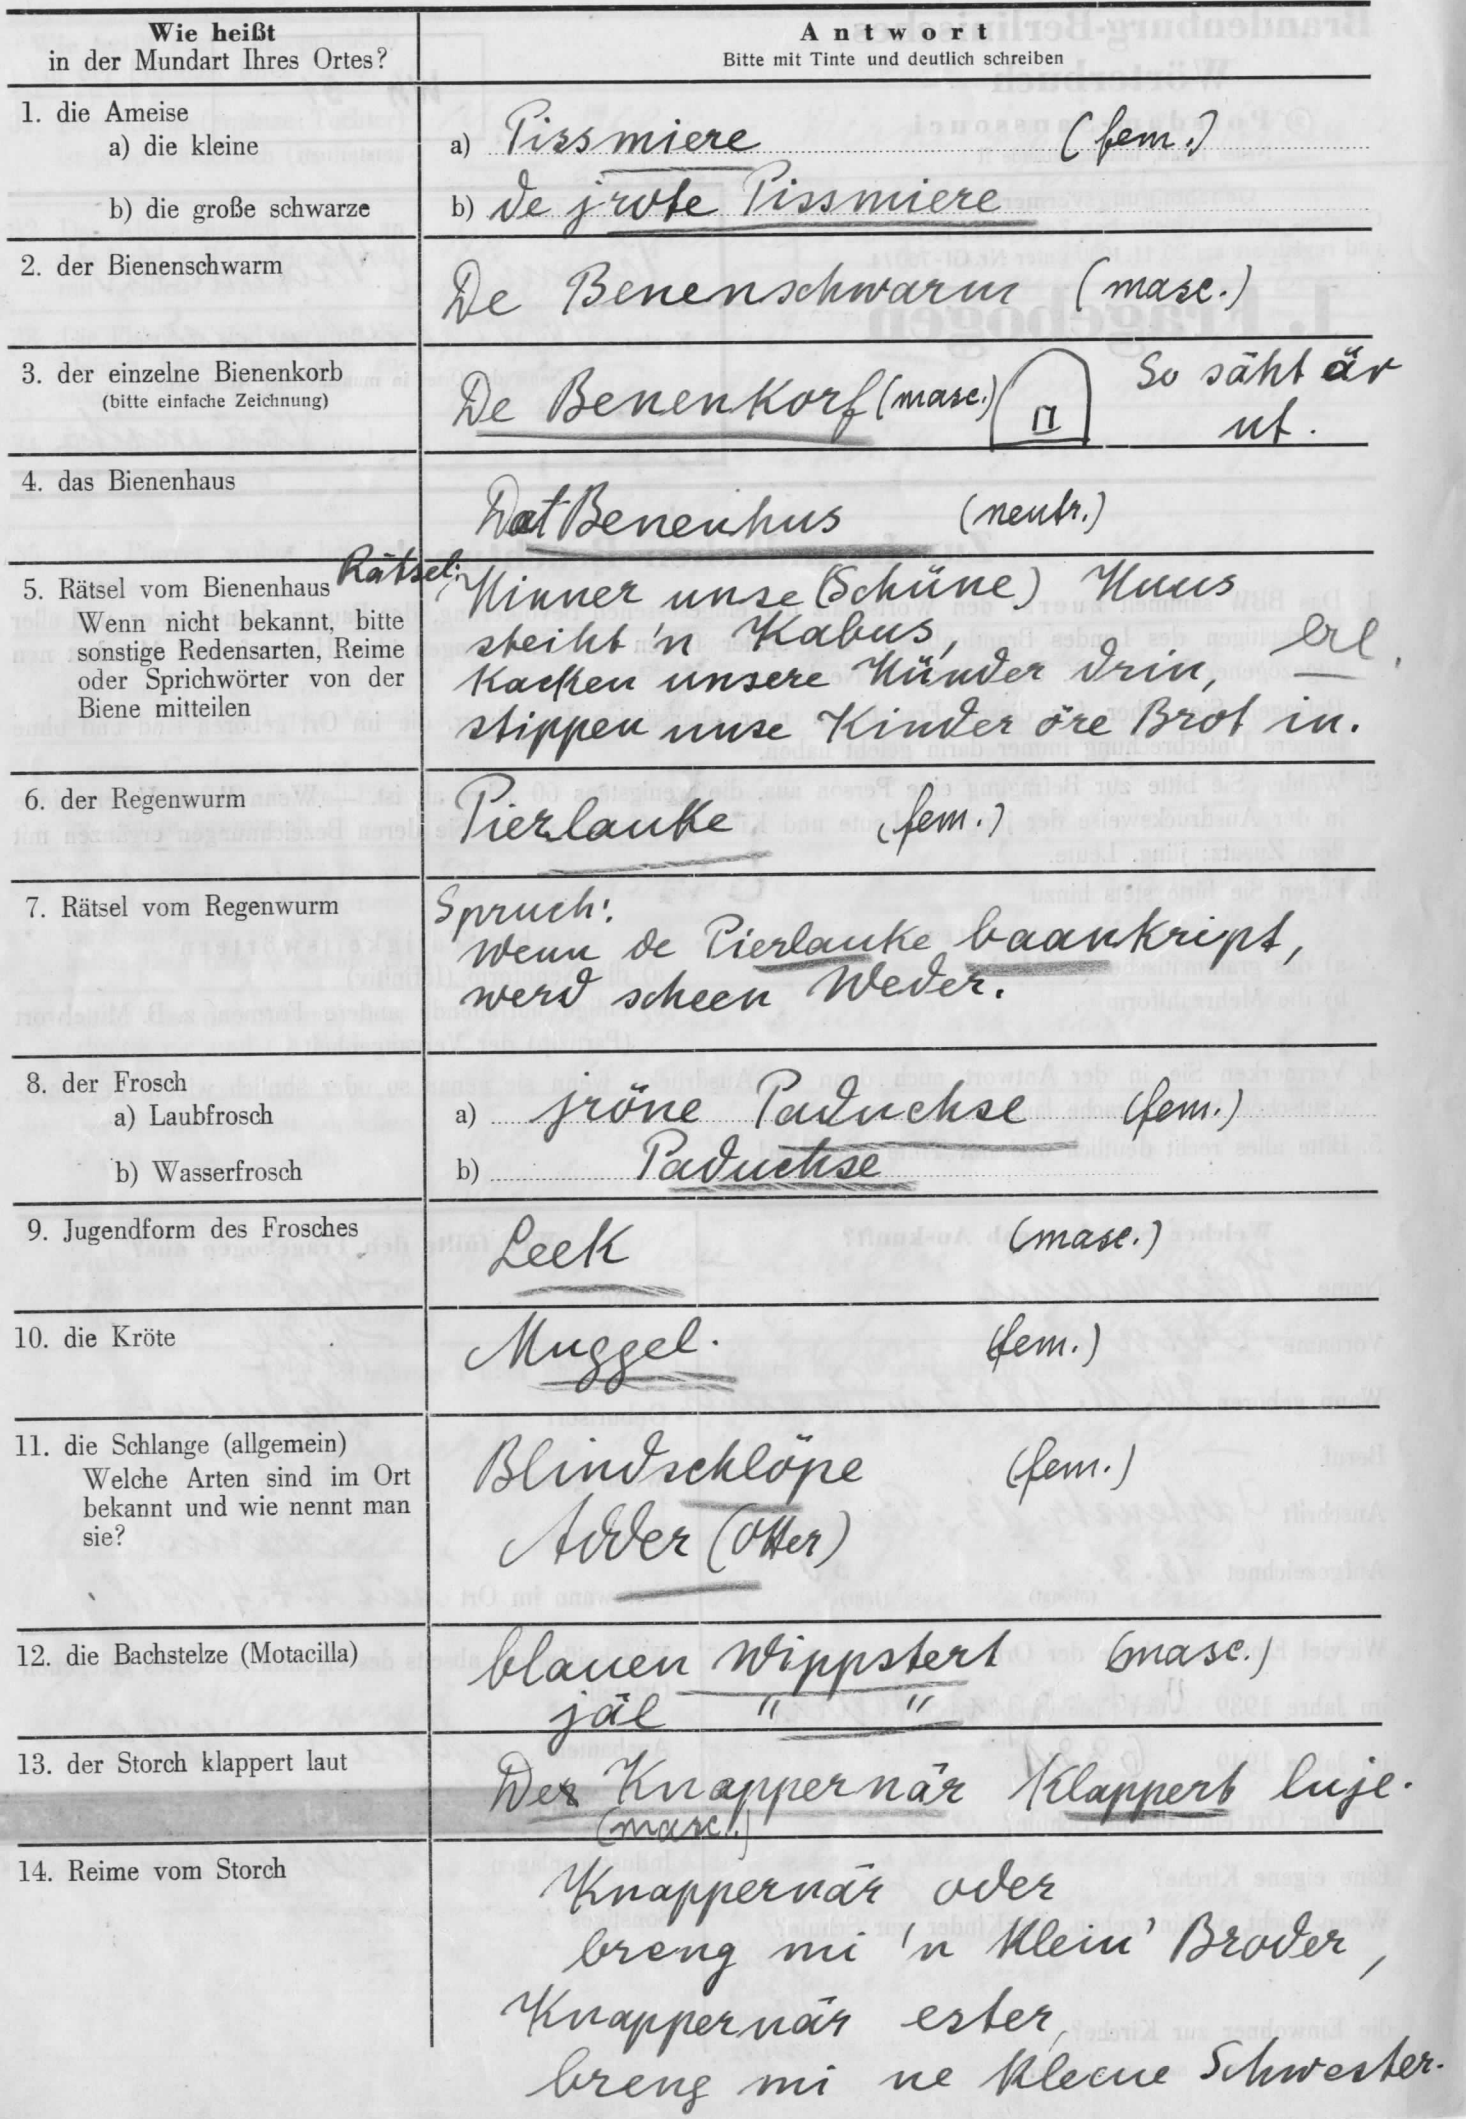 Wie heißt
in der Mundart Ihres Ortes?
Antwort
Bitte mit Tinte und deutlich schreiben
1. die Ameise
a) die kleine
a) Pissmiere (fem.)
b) die große schwarze
b) de jrote Pissmiere
2. der Bienenschwarm
De Benenschwarm (masc.)
3. der einzelne Bienenkorb
(bitte einfache Zeichnung)
De Benenkorf (masc.)
So säht är
ut.
4. das Bienenhaus
Dat Benenhus (neutr.)
5. Rätsel vom Bienenhaus
Wenn nicht bekannt, bitte
sonstige Redensarten, Reime
oder Sprichwörter von der
Biene mitteilen
Rätsel: Hinner unse (Schüne) Huus
steiht 'n Kabus,
kacken unsere Hünder drin,
stippen unse Kinder öre Brot in.
erl.
6. der Regenwurm
Pierlauke (fem.)
7. Rätsel vom Regenwurm
Spruch:
Wenn de Pierlauke baankript,
werd scheen Weder.
8. der Frosch
a) Laubfrosch
a) jröne Paduchse (fem.)
b) Wasserfrosch
b) Paduchse
9. Jugendform des Frosches
Leek (masc.)
10. die Kröte
Muggel. (fem.)
11. die Schlange (allgemein)
Welche Arten sind im Ort
bekannt und wie nennt man
sie?
Blindschlöpe (fem.)
Adder (Otter)
12. die Bachstelze (Motacilla)
blauen Wippstert (masc.)
jäl " "
13. der Storch klappert laut
Der Knappernär klappert luje.
(masc.)
14. Reime vom Storch
Knappernär oder
breng mi 'n klein' Broder,
Knappernär ester,
breng mi ne kleene Schwester.